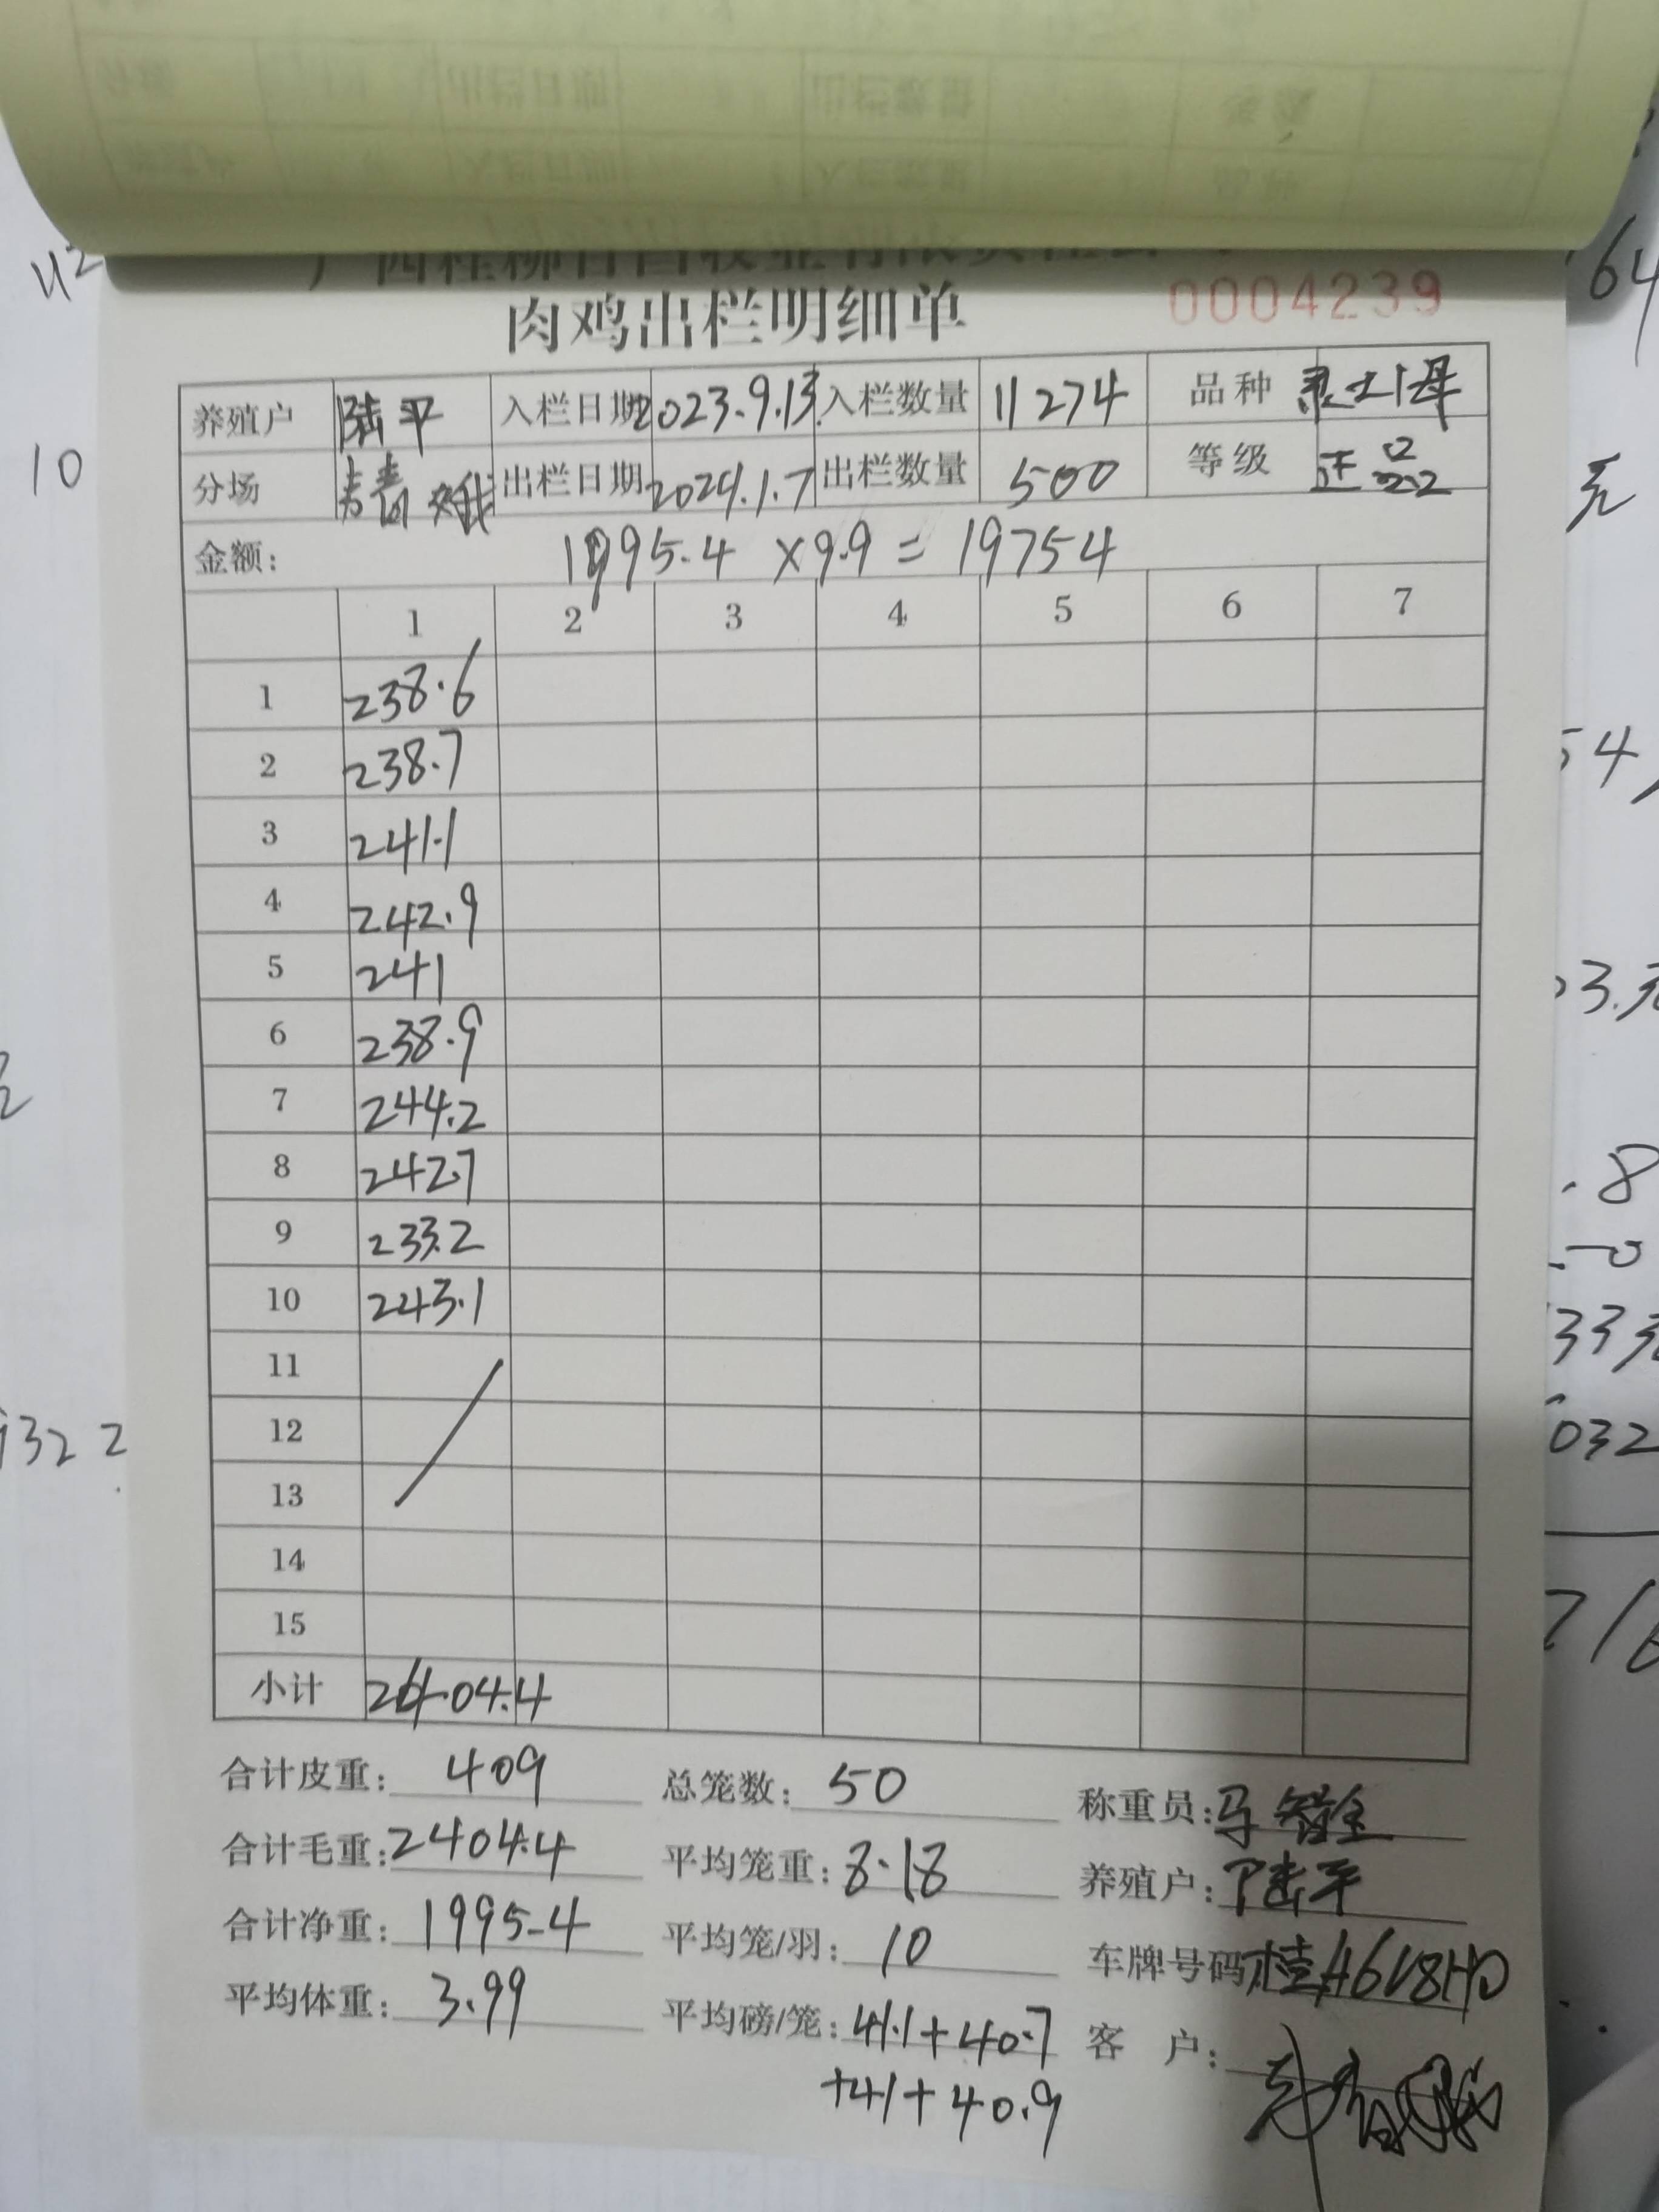 肉鸡出栏明细单 0004239
养殖户 陆平 入栏日期 2023.9.13 入栏数量 11274 品种 灵土1母
分场 出栏日期 2024.1.7 出栏数量 500 等级 正品
金额: 1995.4 ×9.9 = 19754
1 2 3 4 5 6 7
1 238.6
2 238.7
3 241.1
4 242.9
5 241
6 238.9
7 244.2
8 242.7
9 233.2
10 243.1
11
12
13
14
15
小计 2404.4
合计皮重: 409 总笼数: 50 称重员:
合计毛重: 2404.4 平均笼重: 8.18 养殖户: 陆平
合计净重: 1995.4 平均笼/羽: 10 车牌号码
平均体重: 3.99 平均磅/笼: 41.1+40.7 客 户:
+41+40.9